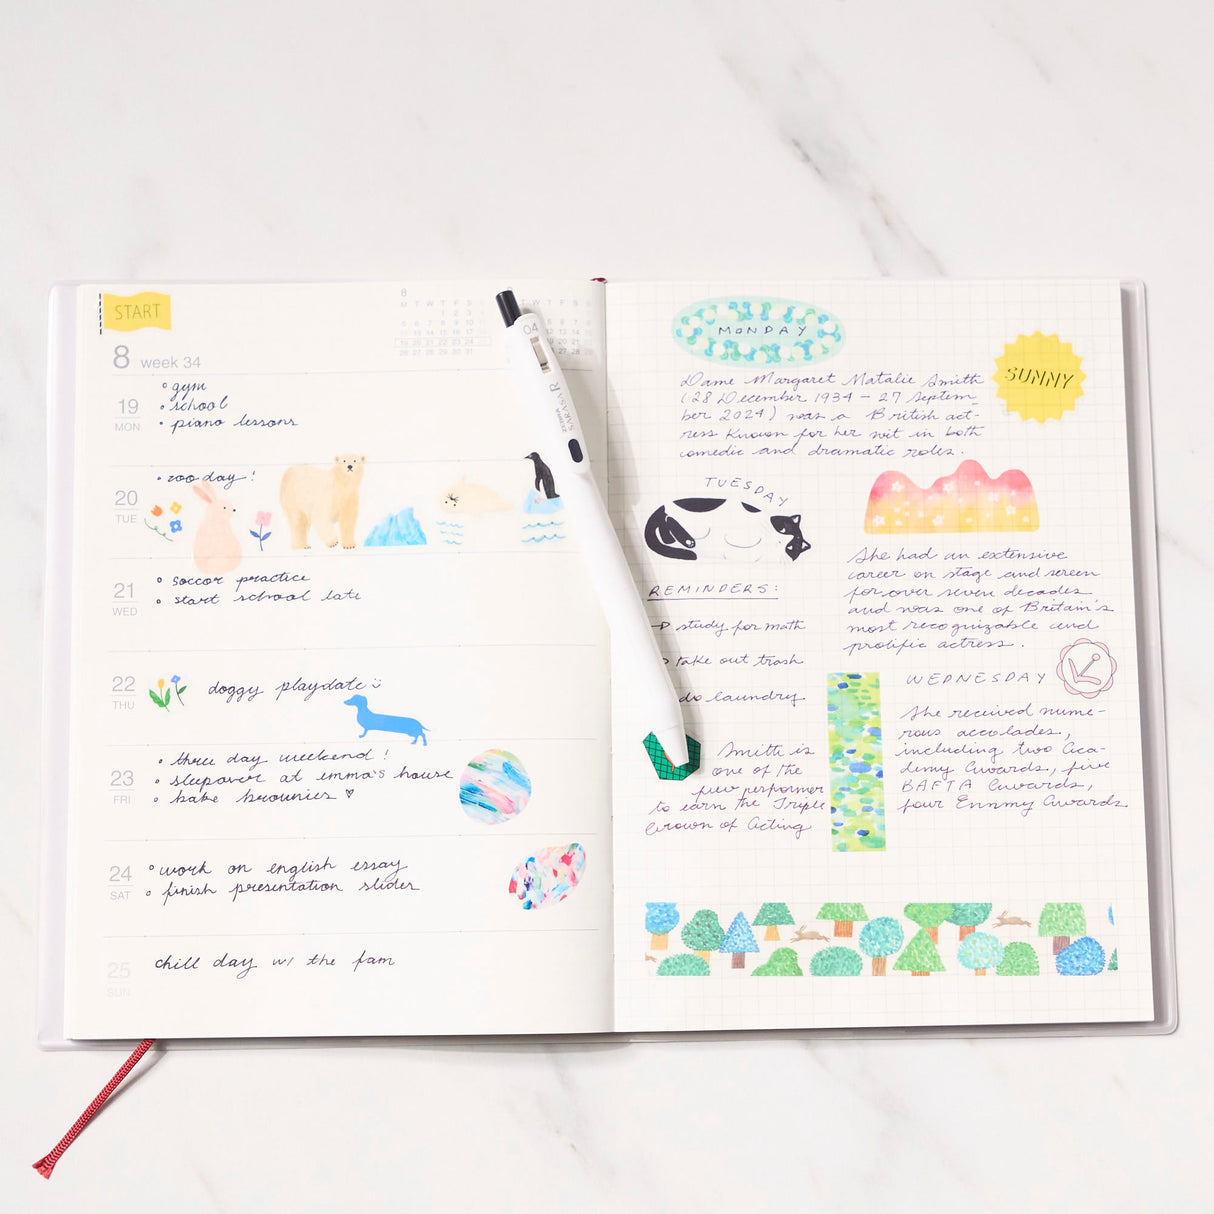 START
8 week 34
8
M T W T F S
1 2 3
19
MON
gym
school
piano lessons
20
TUE
zoo day!
21
WED
soccor practice
start school late
22
THU
doggy playdate
23
FRI
three day weekend!
sleepover at emma's house
bake brownies ♡
24
SAT
work on english essay
finish presentation slider
25
SUN
chill day w/ the fam
04
ZEBRA
SARASA R
MONDAY
SUNNY
Dame Margaret Natalie Smith
(28 December 1934 – 27 Septem-
ber 2024) was a British act-
ress known for her wit in both
comedic and dramatic roles.
TUESDAY
REMINDERS:
→ study for math
take out trash
do laundry
She had an extensive
career on stage and screen
for over seven decades
and was one of Britain's
most recognizable and
prolific actress.
WEDNESDAY
She received nume-
rous accolades,
including two Aca-
demy Awards, five
BAFTA Awards,
four Emmy Awards
Smith is
one of the
few performer
to earn the Triple
Crown of Acting